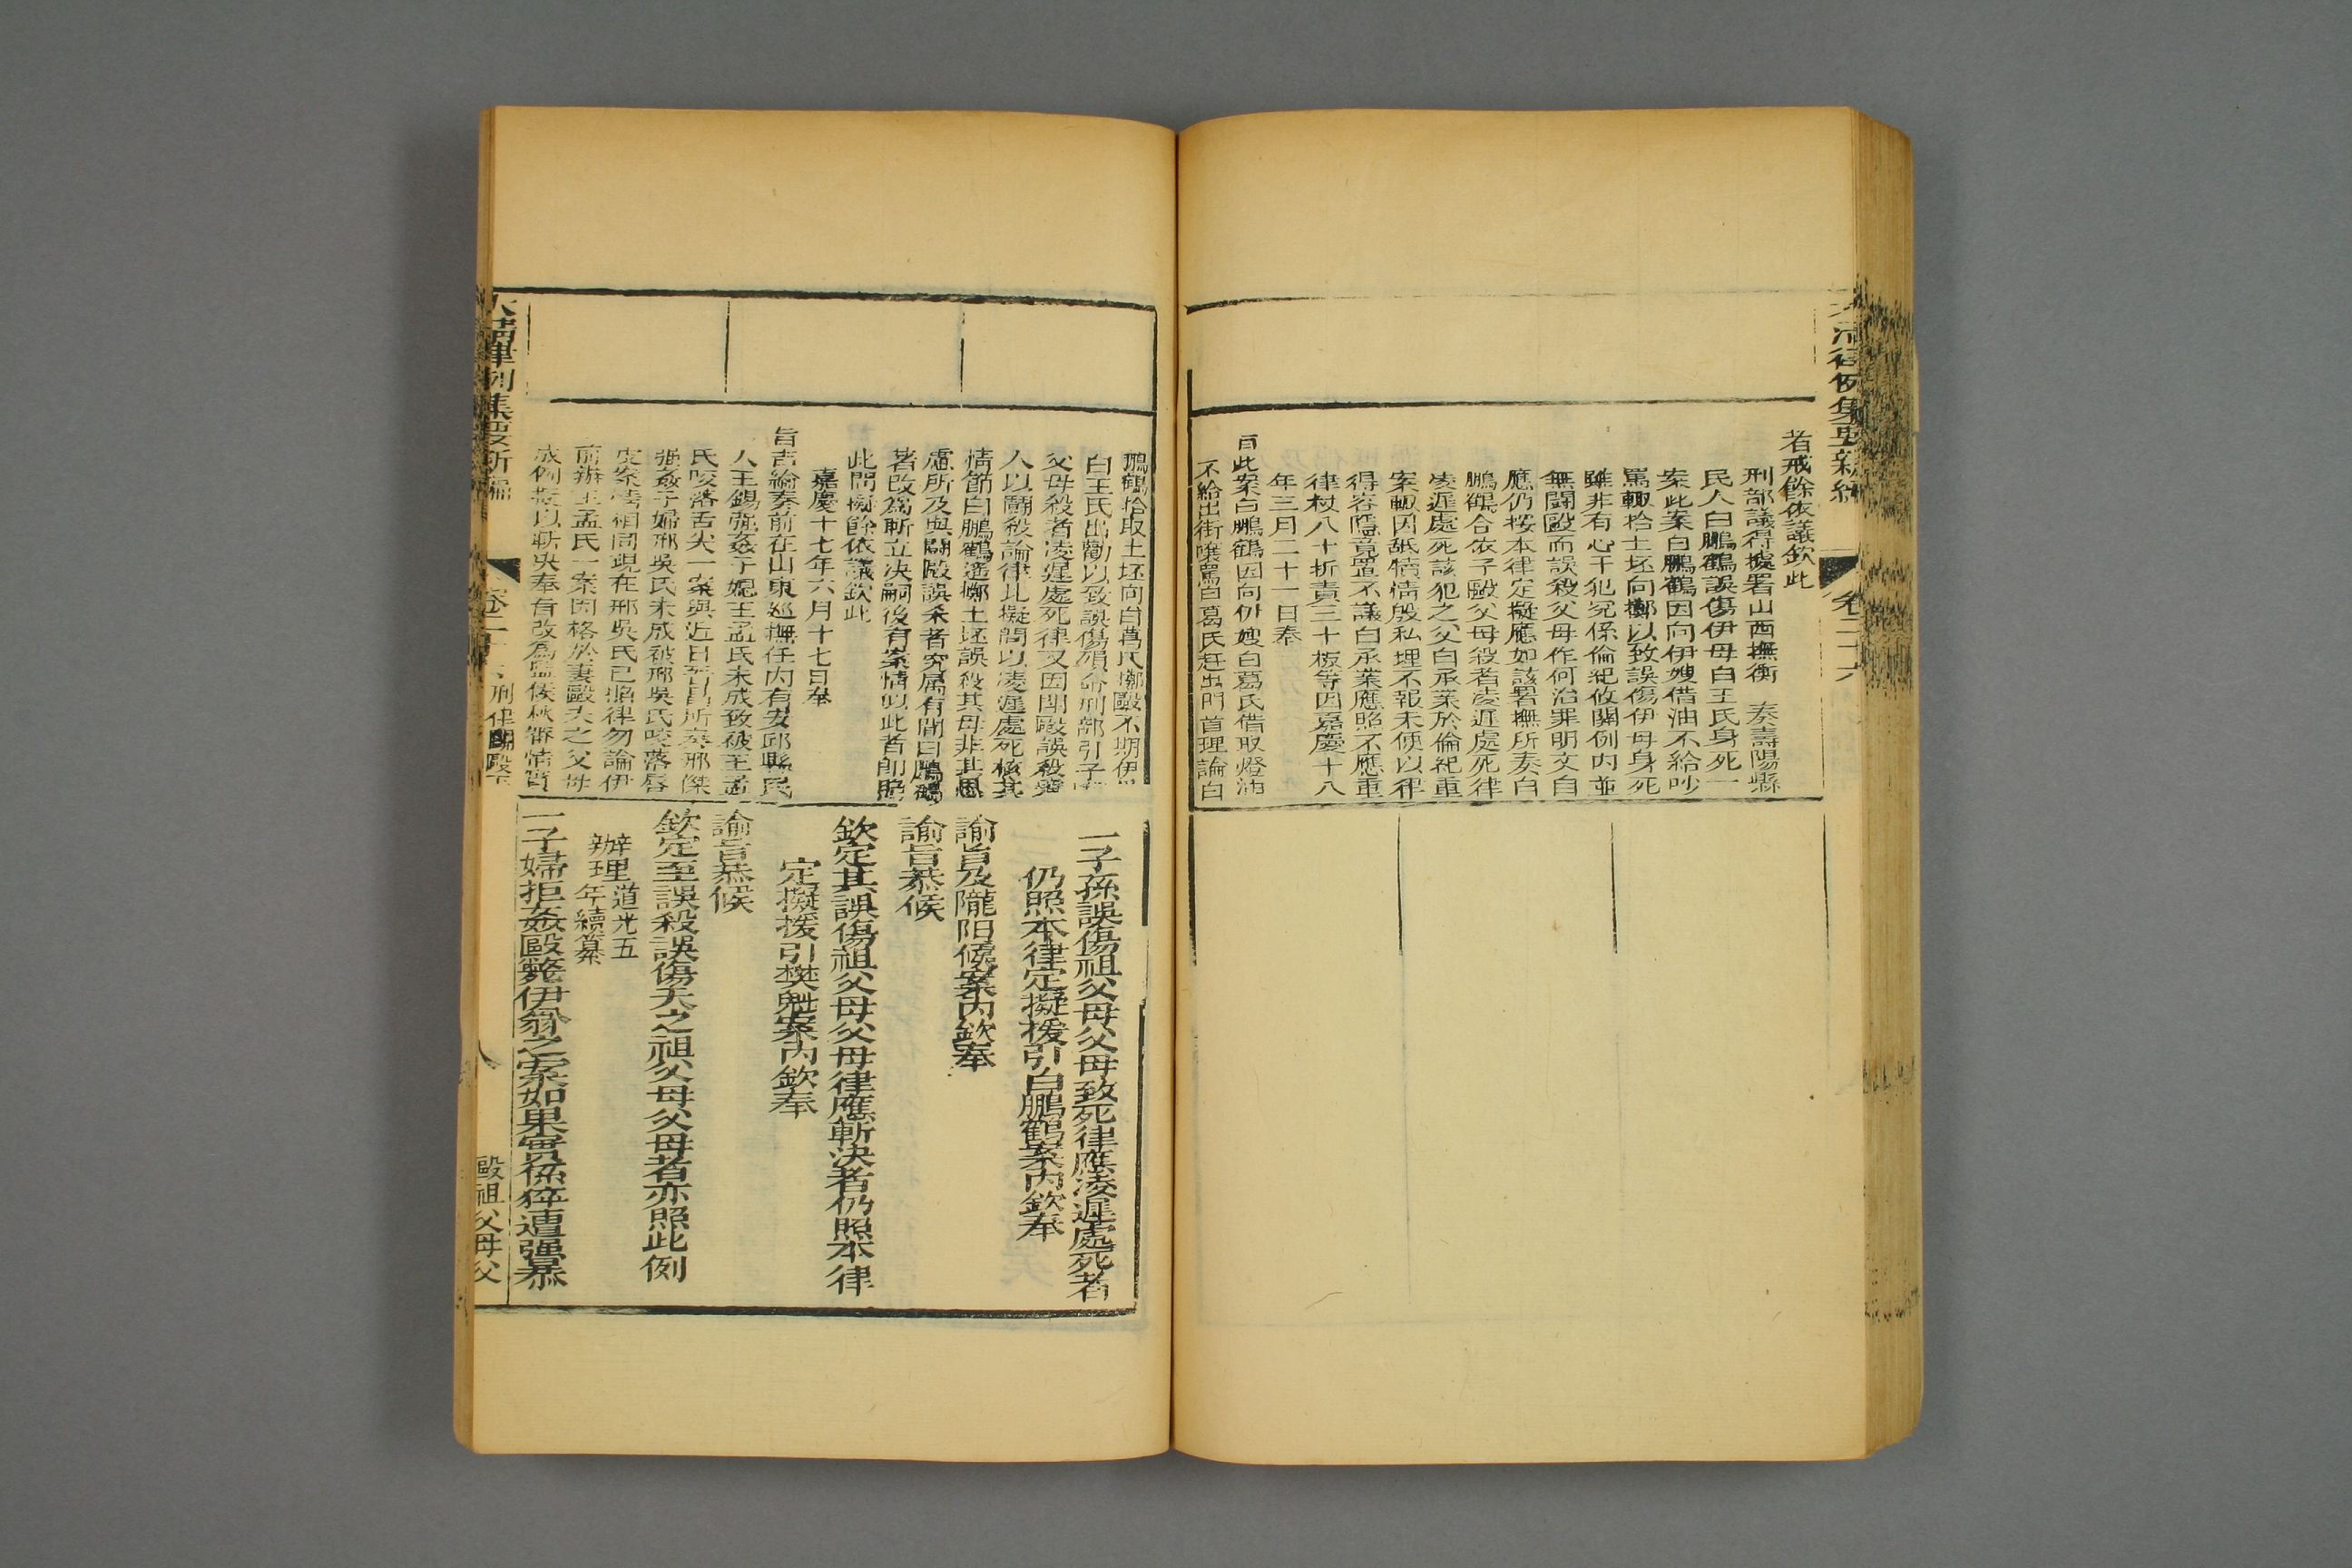 大清律例集要新編
卷二十六
者戒餘依議欽此
刑部議得據署山西撫衡 奏壽陽縣
民人白鵬鶴誤傷伊母白王氏身死一
案此案白鵬鶴因向伊嫂借油不給吵
罵輒拾土坯向擲以致誤傷伊母身死
雖非有心干犯究係倫紀攸關例內並
無鬬毆而誤殺父母作何治罪明文自
應仍按本律定擬應如該署撫所奏白
鵬鶴合依子毆父母殺者凌遲處死律
凌遲處死該犯之父白承業於倫紀重
案輒因舐犢情殷私埋不報未便以律
得容隱竟置不議白承業應照不應重
律杖八十折責三十板等因嘉慶十八
年三月二十一日奉
旨此案白鵬鶴因向伊嫂白葛氏借取燈油
不給出街嚷罵白葛氏赶出門首理論白
鵬鶴拾取土坯向白葛氏擲毆不期伊
白王氏出勸以致誤傷殞命刑部引子
父母殺者凌遲處死律又因鬬毆誤殺
人以鬬殺論律比擬問以凌遲處死核其
情節白鵬鶴遙擲土坯誤殺其母非其思
慮所及與鬬毆誤殺者究屬有間白鵬鶴
著改為斬立決嗣後有案情似此者即照
此問擬餘依議欽此
嘉慶十七年六月十七日奉
旨吉綸奏前在山東巡撫任內有安邱縣民
人王錫強姦子媳王孟氏未成致被王孟
氏咬落舌尖一案與近日 所奏邢傑
強姦子婦邢吳氏未成被邢吳氏咬落唇
皮案情相同現在邢吳氏已照律勿論伊
前辦王孟氏一案因格於妻毆夫之父母
成例擬以斬決奉旨改為監候秋審情實
一子孫誤傷祖父母父母致死律應凌遲處死者
仍照本律定擬援引白鵬鶴案內欽奉
諭旨及隴阳候案內欽奉
諭旨恭候
欽定其誤傷祖父母父母律應斬決者仍照本律
定擬援引樊魁案內欽奉
諭旨恭候
欽定至誤殺誤傷夫之祖父母父母者亦照此例
辦理道光五
年續纂
一子婦拒姦毆斃伊翁之案如果實係猝遭强暴
大清律例集要新編
卷二十六 刑律鬬毆下
八
毆祖父母父